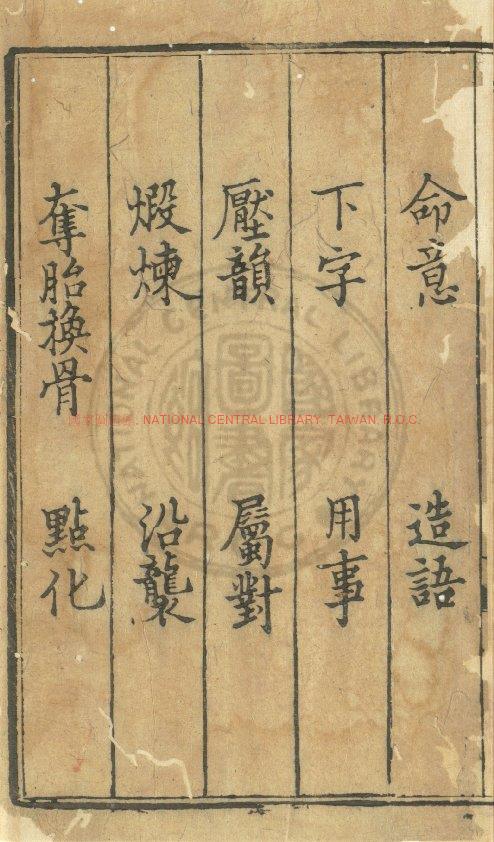 命意 造語
下字 用事
壓韻 屬對
煅煉 沿襲
奪胎換骨 點化
國家圖書館, NATIONAL CENTRAL LIBRARY, TAIWAN, R.O.C.
NATIONAL CENTRAL LIBRARY